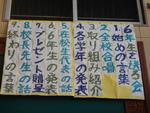 6年生を送る会
1.始めの言葉
2.全校合唱
3.取り組み紹介
4.各学年の発表
5.在校生代表の話
6.6年生の発表
7.プレゼント贈呈
8.校長先生の話
9.終わりの言葉